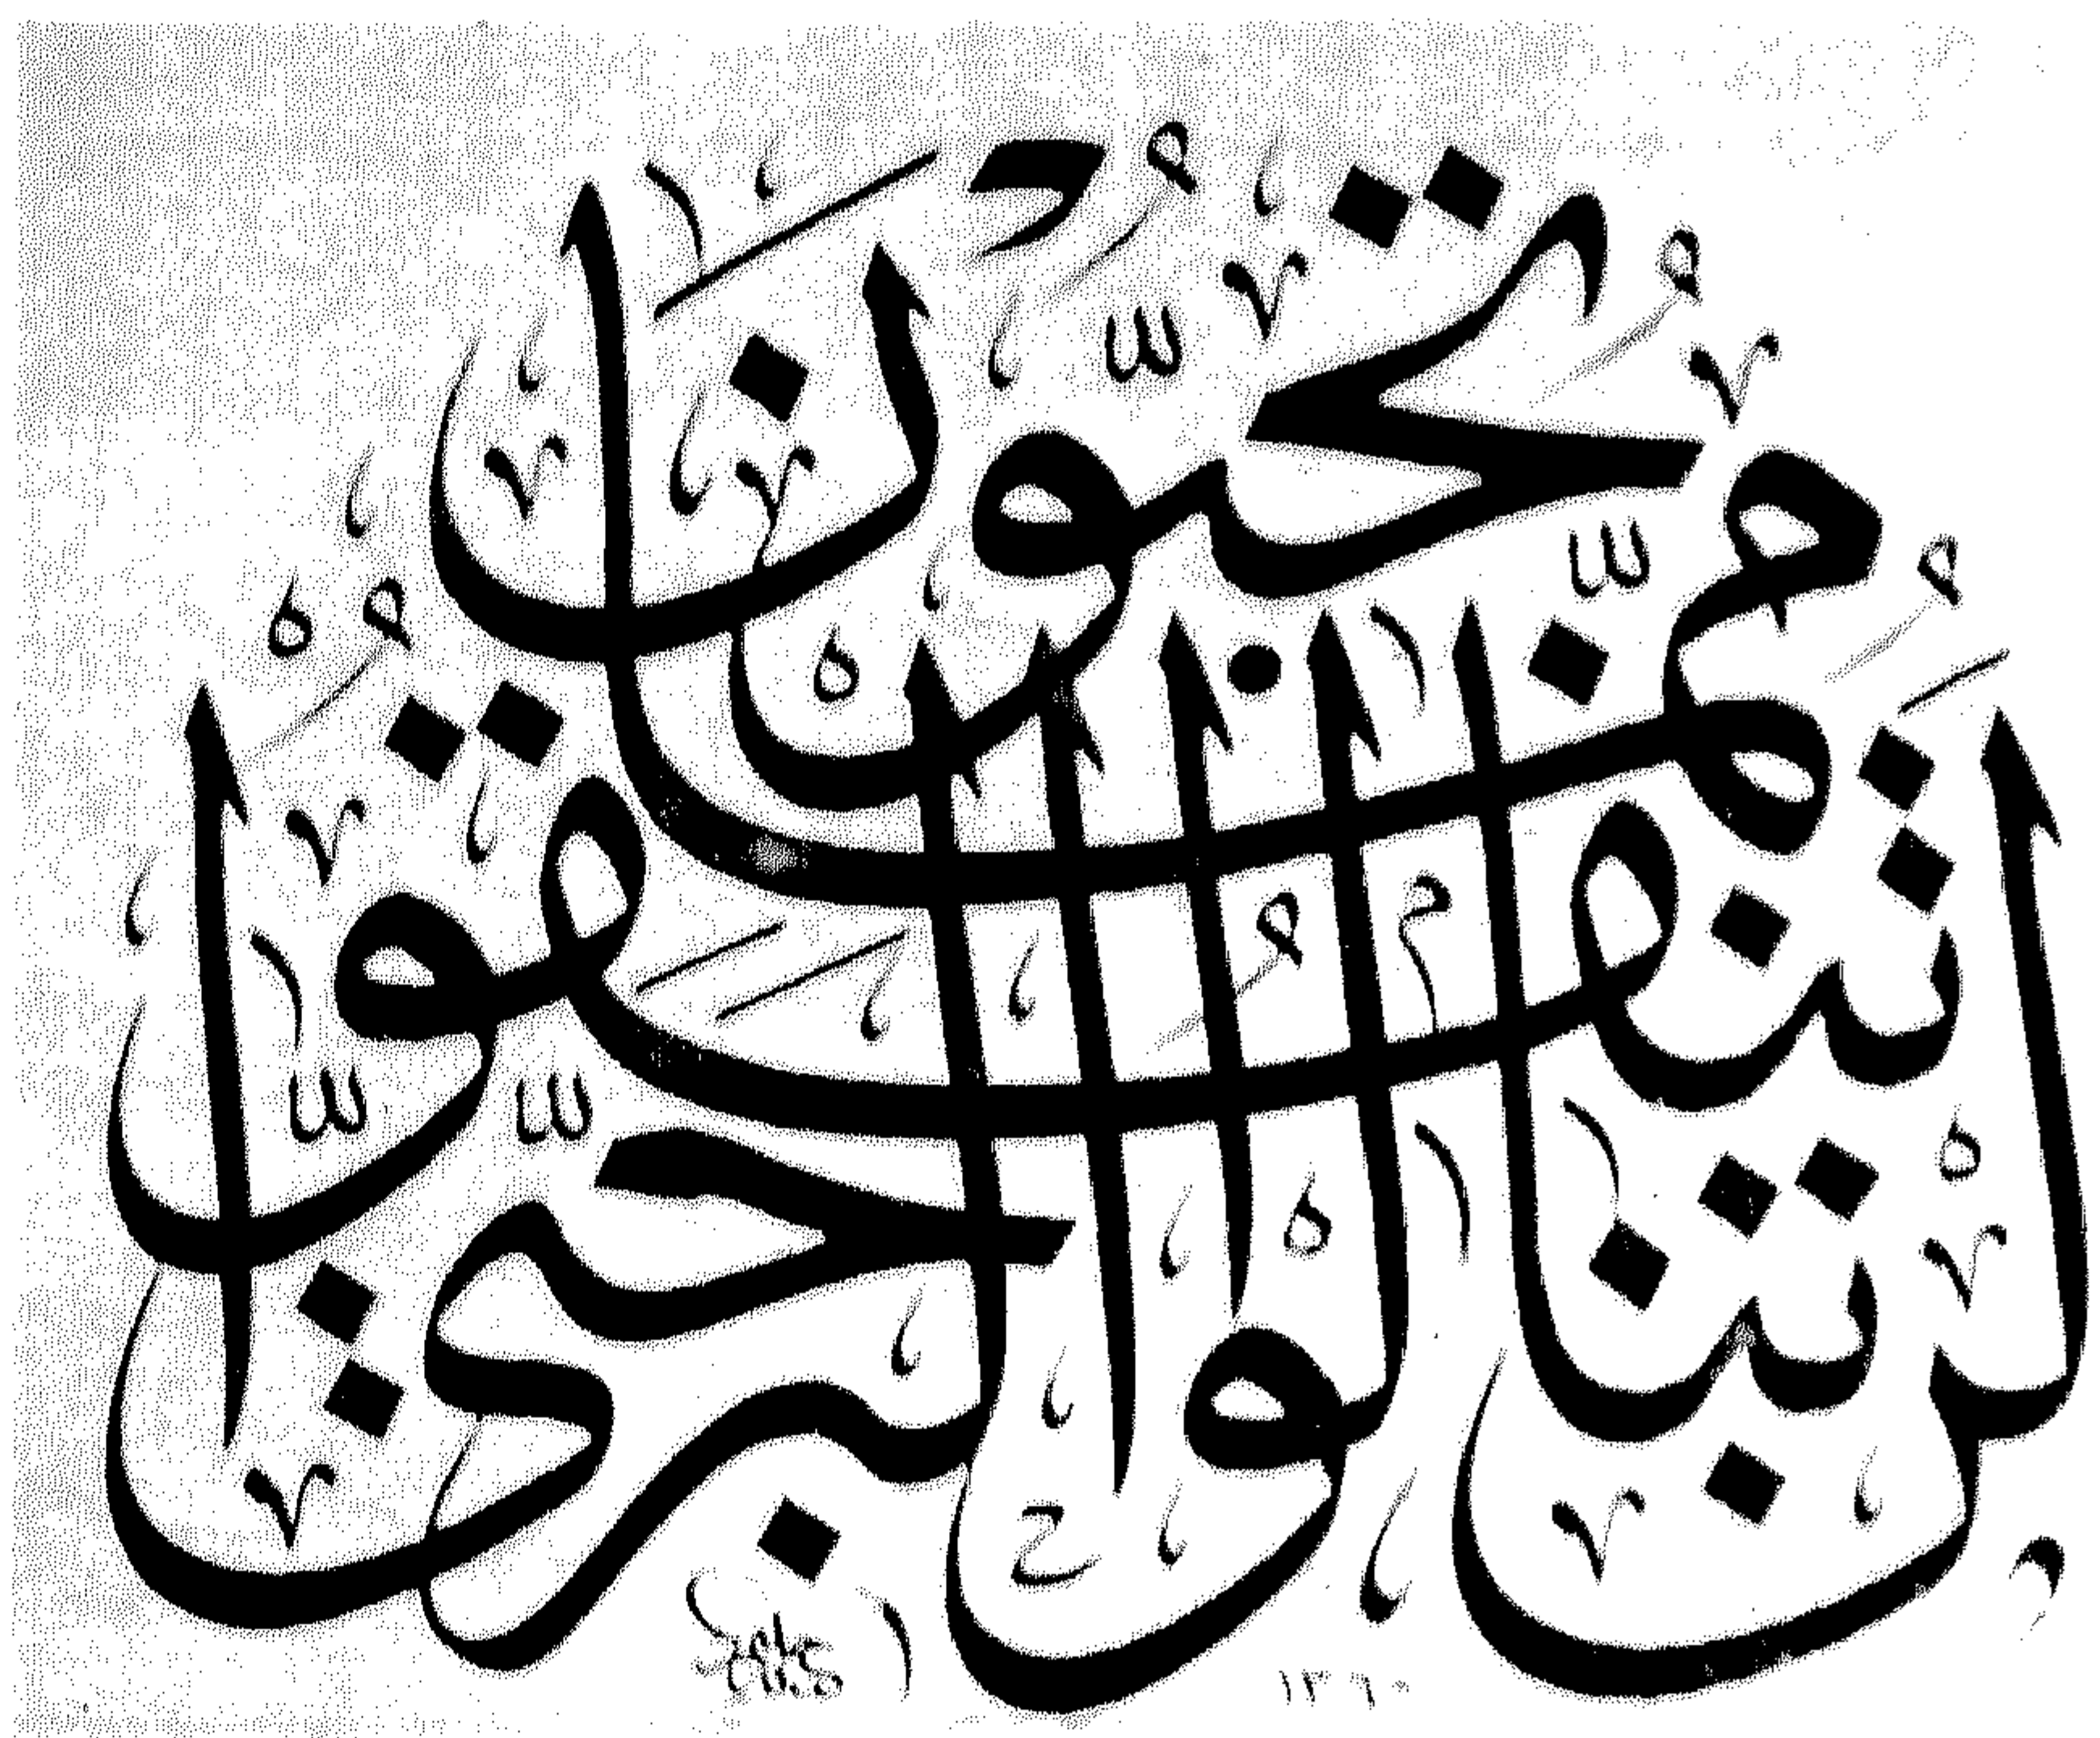 لن تنالوا البر حتى تنفقوا مما تحبون
١٣٦٠